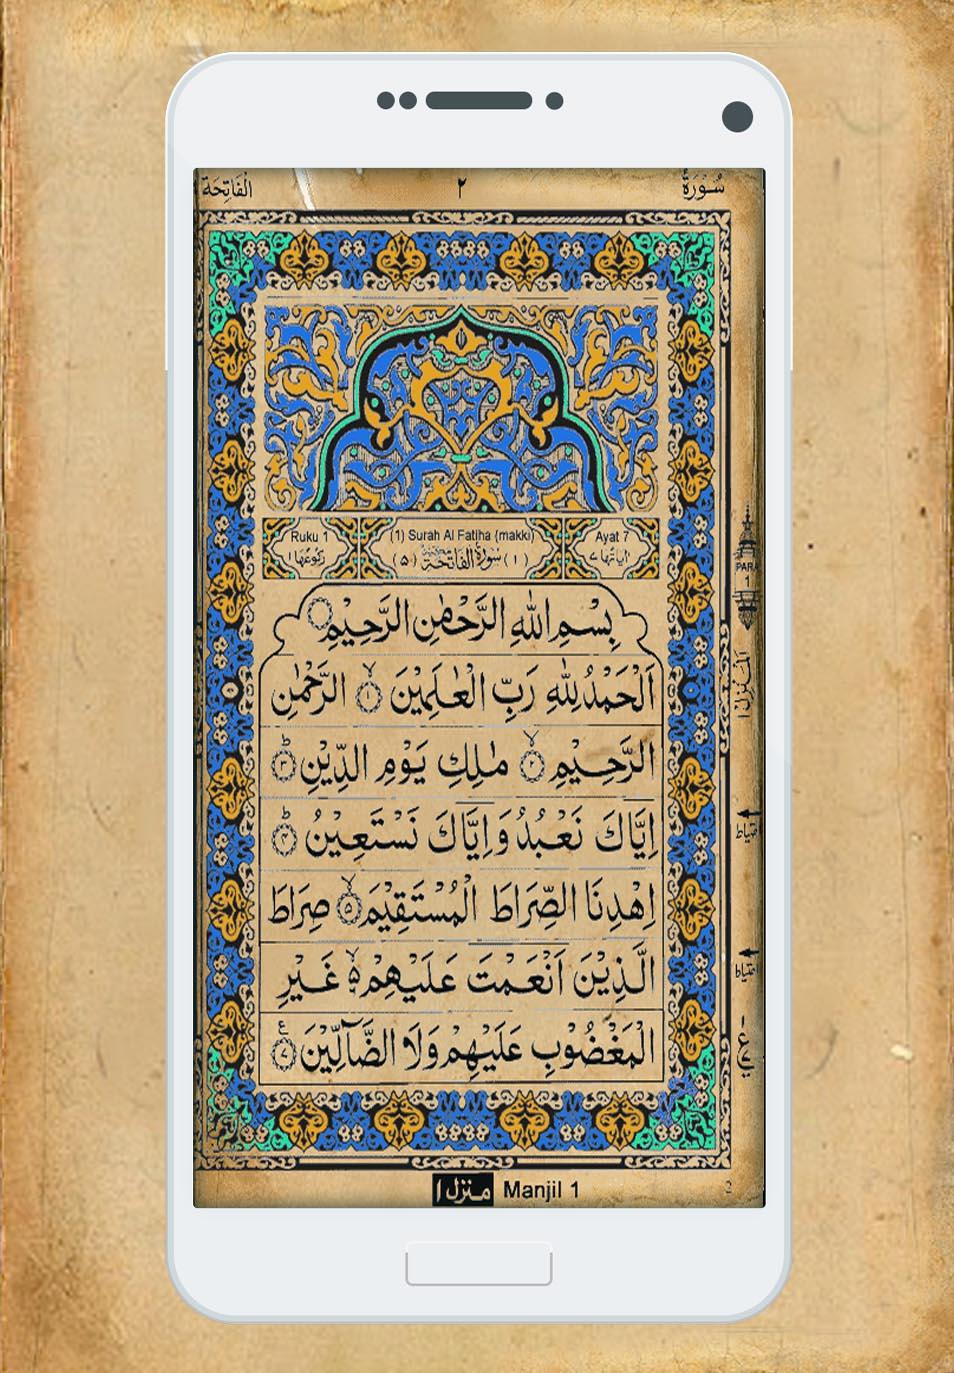 سُوْرَةُ ٢ الْفَاتِحَة
Ruku 1 (1) Surah Al Fatiha (makki) Ayat 7
اٰیاتُہا ٧ (١) سُوْرَةُ الْفَاتِحَةِ (٥) رکوعُہا ١
بِسْمِ اللّٰهِ الرَّحْمٰنِ الرَّحِيْمِ
اَلْحَمْدُ لِلّٰهِ رَبِّ الْعٰلَمِيْنَ ۙ﴿١﴾ الرَّحْمٰنِ
الرَّحِيْمِ ۙ﴿٢﴾ مٰلِكِ يَوْمِ الدِّيْنِ ؕ﴿٣﴾
اِيَّاكَ نَعْبُدُ وَاِيَّاكَ نَسْتَعِيْنُ ؕ﴿٤﴾
اِهْدِنَا الصِّرَاطَ الْمُسْتَقِيْمَ ۙ﴿٥﴾ صِرَاطَ
الَّذِيْنَ اَنْعَمْتَ عَلَيْهِمْ ۙ٥ غَيْرِ
الْمَغْضُوْبِ عَلَيْهِمْ وَلَا الضَّآلِّيْنَ ﴿٧﴾ ع
PARA
1
اَلْمَنْزِل ١
احتیاط
احتیاط
ع
منزل ١ Manjil 1
2